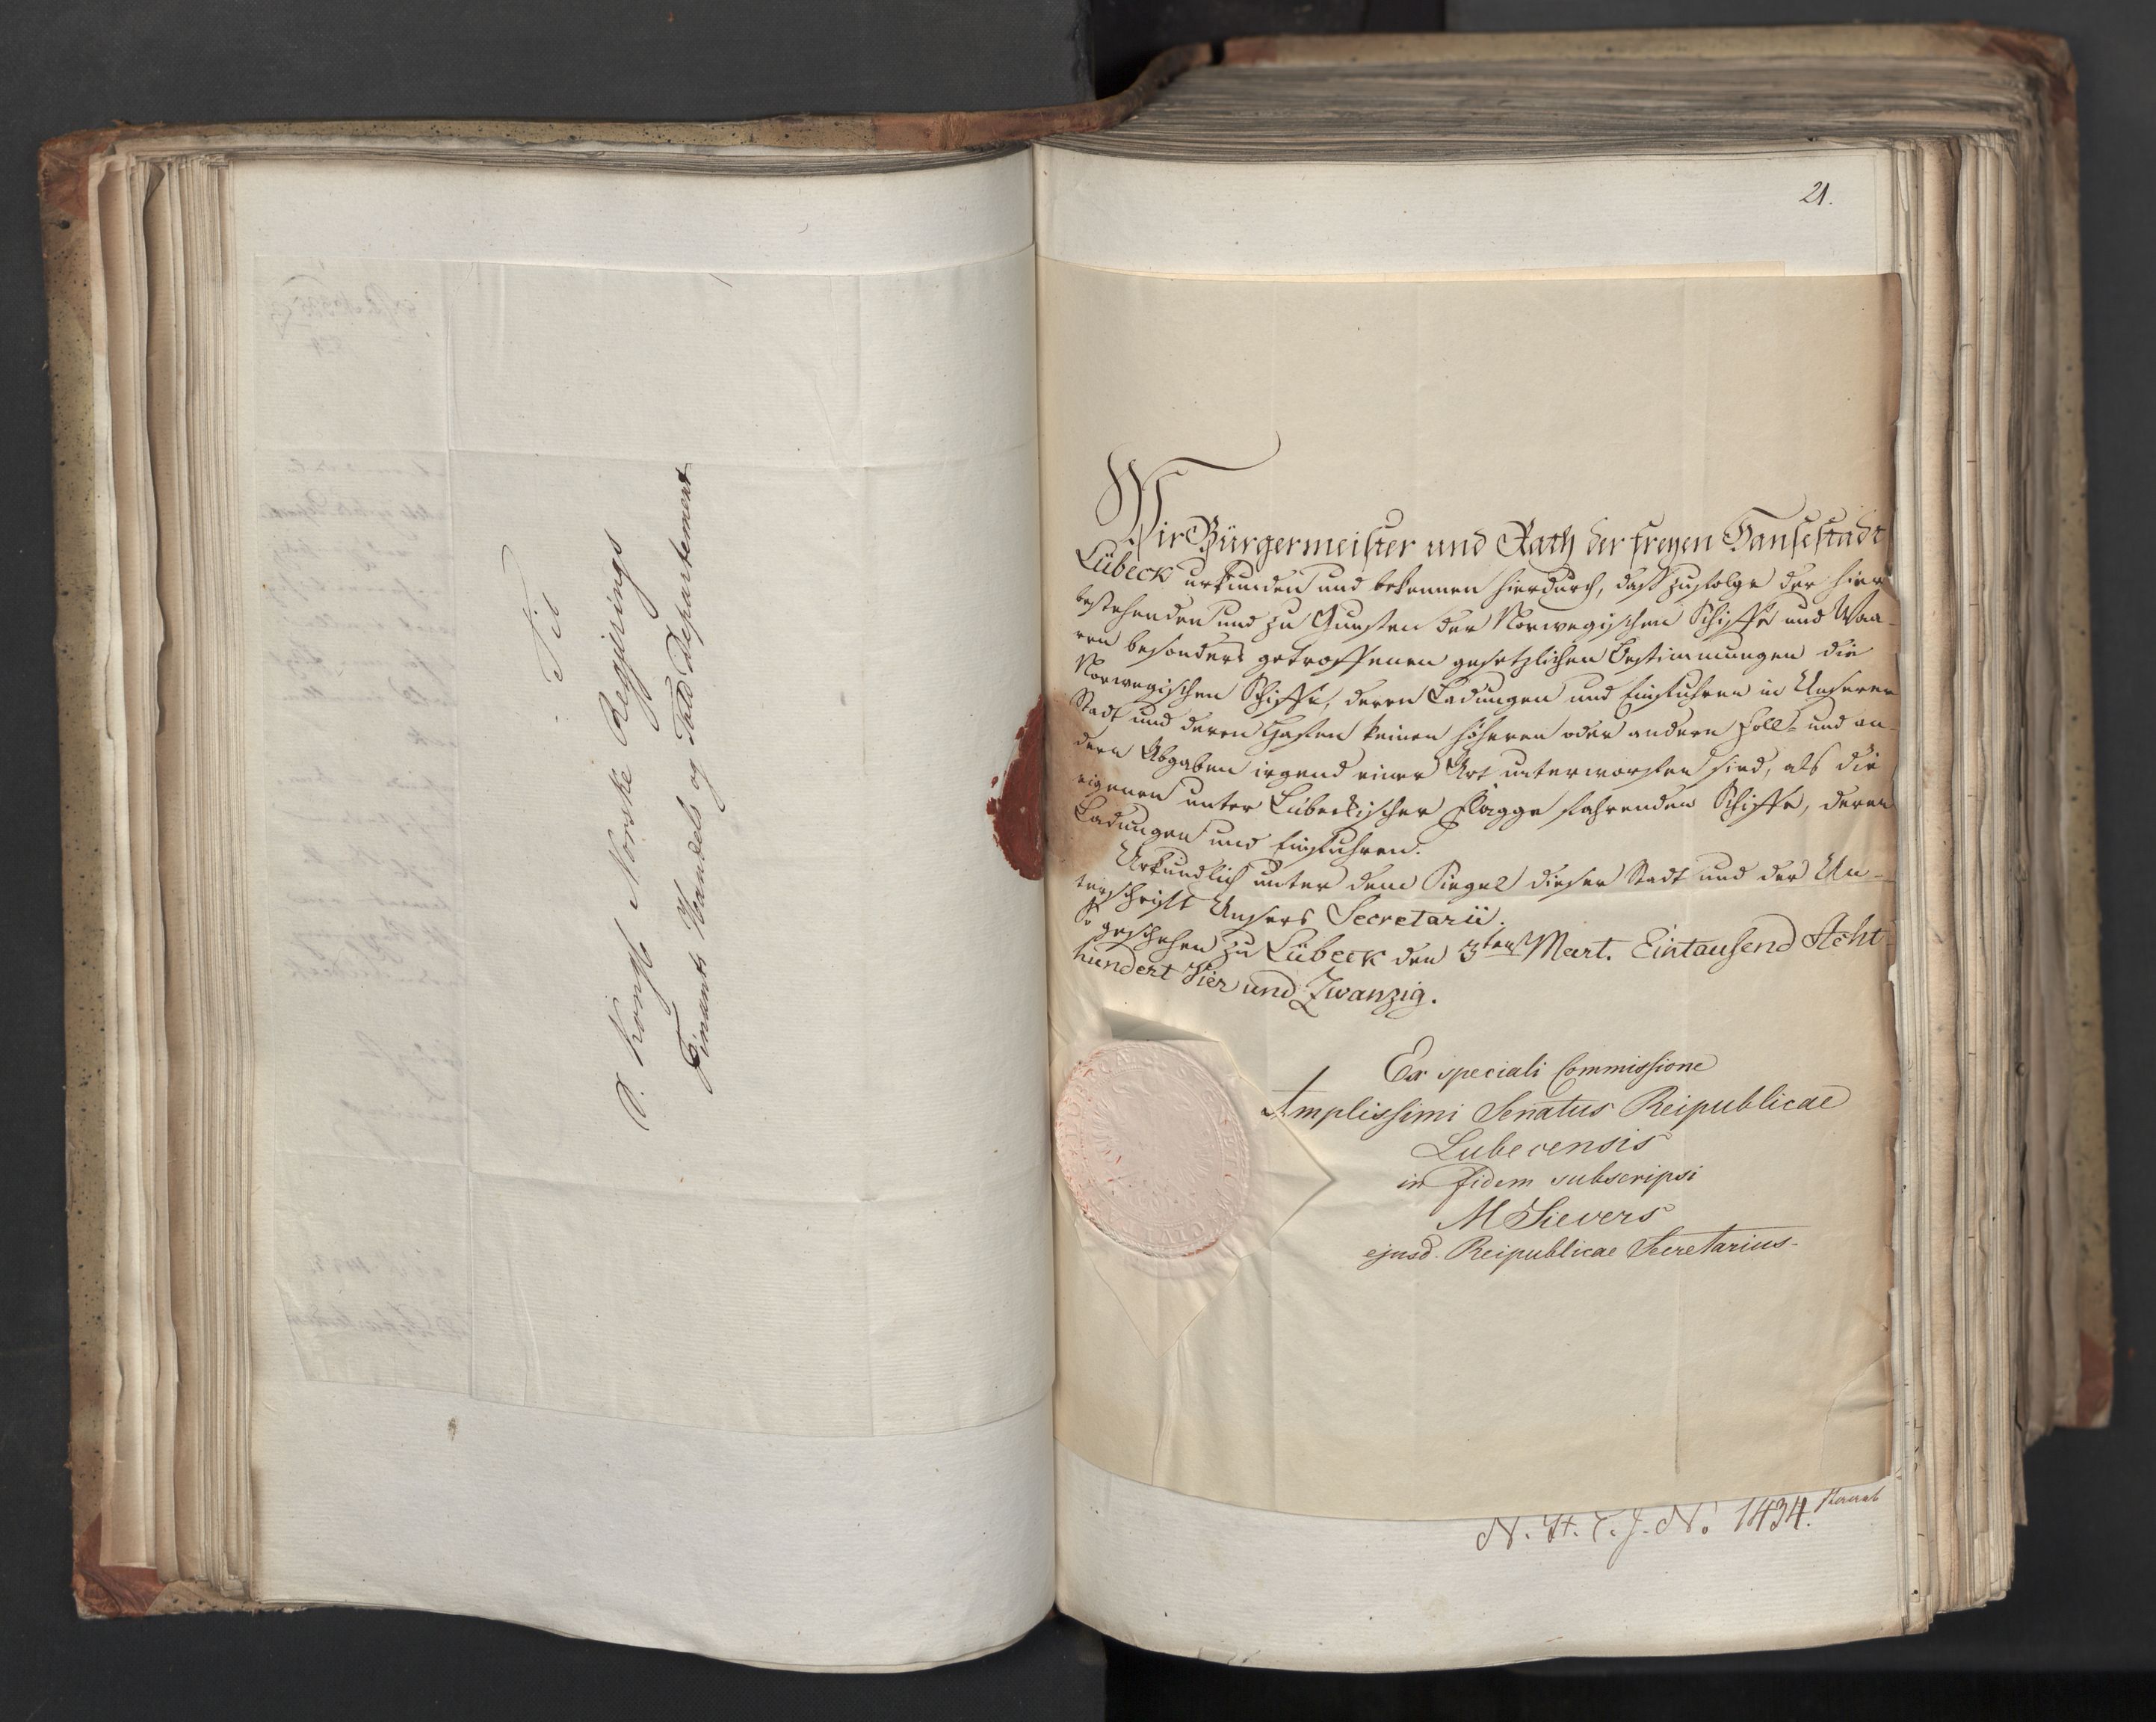 Til
d. Kongl. Norske Regjerings
Finants Handels og Told Departement
21.
Wir Bürgermeister und Rath der freyen Hansestadt
Lübeck urkunden und bekennen hierdurch, daß zufolge der hier
bestehenden und zu Gunsten der Norwegischen Schiffe und Waa-
ren besonders getroffenen gesetzlichen Bestimmungen die
Norwegischen Schiffe, deren Ladungen und Einfuhren in Unserer
Stadt und deren Hafen keinen höheren oder andern Zoll- und an-
dern Abgaben irgend einer Art unterworfen sind, als die
eigenen unter Lübeckischer Flagge fahrenden Schiffe, deren
Ladungen und Einfuhren.
Urkundlich unter dem Siegel dieser Stadt und der Un-
terschrift Unsers Secretarii.
So geschehen zu Lübeck den 3ten Mart. Eintausend Acht-
hundert Vier und Zwanzig.
Ex speciali Commissione
Amplissimi Senatus Reipublicae
Lubecensis
in fidem subscripsi
M Sievers
ejusd. Reipublicae Secretarius.
N. H. T. J. No. 1434.